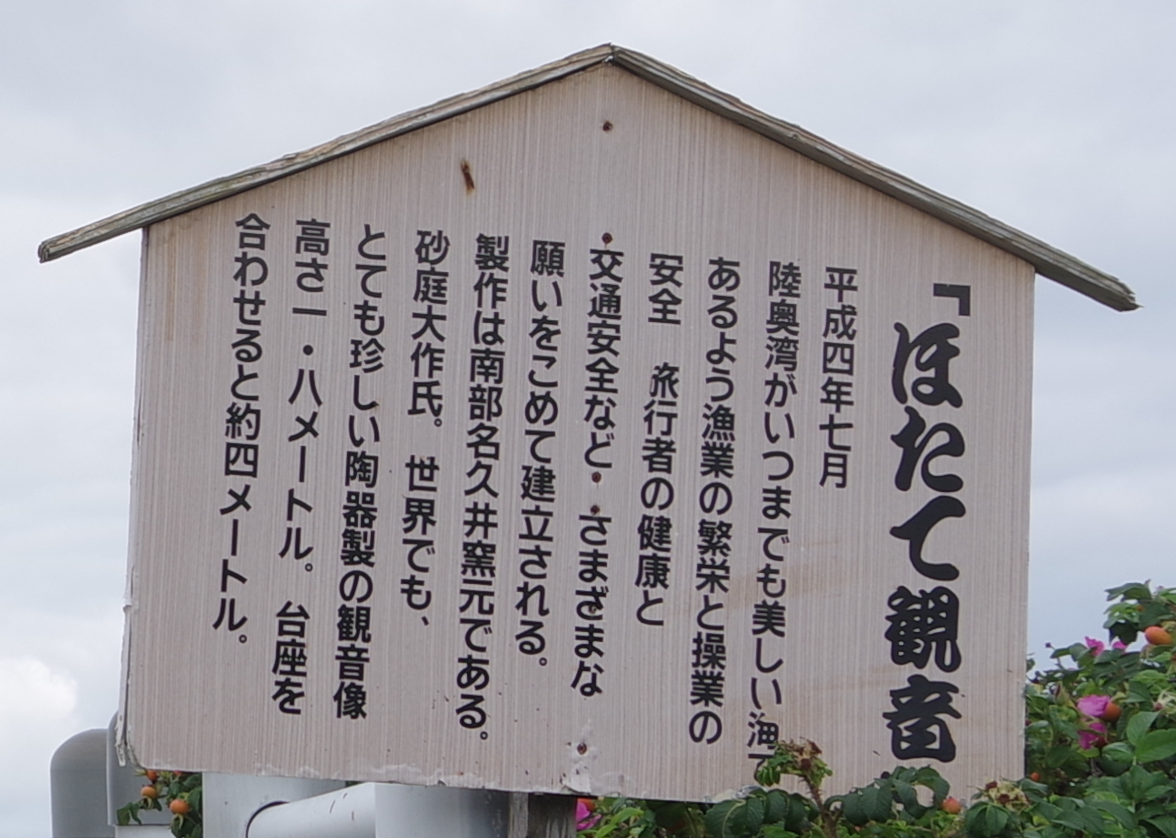 「ほたて観音
平成四年七月
陸奥湾がいつまでも美しい海で
あるよう漁業の繁栄と操業の
安全　旅行者の健康と
交通安全など・さまざまな
願いをこめて建立される。
製作は南部名久井窯元である。
砂庭大作氏。世界でも、
とても珍しい陶器製の観音像
高さ一・八メートル。台座を
合わせると約四メートル。